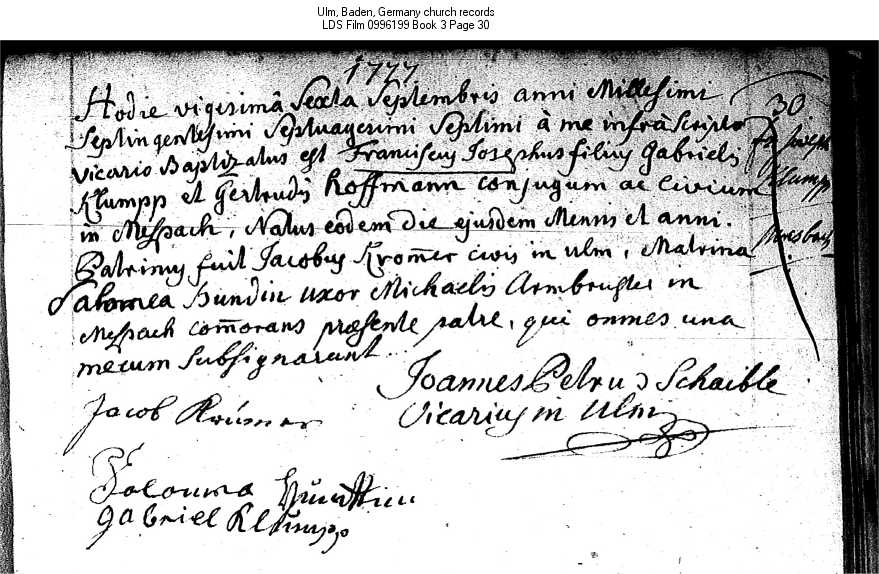 Ulm, Baden, Germany church records
LDS Film 0996199 Book 3 Page 30
1777
30
Hodie vigesimâ Sexta Septembris anni Millesimi
Septingentesimi Septuagesimi Septimi â me infrâ Scripto
Vicario Baptizatus est Franciscus Josephus filius Gabrielis
Klumpp et Gertrudis Hoffmann conjugum ac Civium
in Mespach, Natus eodem die ejusdem Mensis et anni.
Patrinus fuit Jacobus Krom̃er civis in ulm, Matrina
Salomea Bundin uxor Michaelis Armbruster in
Mespach com̃orans præsente patre, qui onmes una
mecum Subsignarunt
Joannes Petrus Schaible
Vicarius in Ulm
Jacob
Gabriel Klumpp
Klumpp